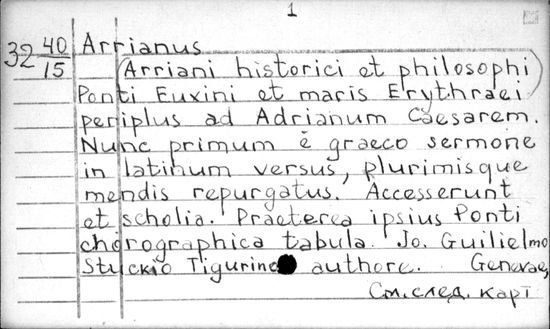 1
32 40/15 Arrianus
(Arriani historici et philosophi)
Ponti Euxini et maris Erythraei
periplus ad Adrianum Caesarem.
Nunc primum è graeco sermone
in latinum versus, plurimisque
mendis repurgatus. Accesserunt
et scholia. Praeterea ipsius Ponti
chorographica tabula. Jo. Guilielmo
Stuckio Tigurino authore. Genevae,
См. след. карт